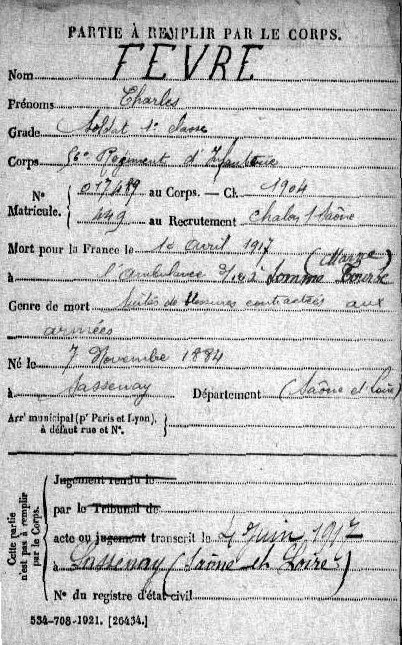 PARTIE À REMPLIR PAR LE CORPS.
Nom FEVRE
Prénoms Charles
Grade Soldat 1e Classe
Corps 56e Régiment d'Infanterie
N° Matricule. { 017419 au Corps. — Cl. 1904
449 au Recrutement Chalon s/Saône
Mort pour la France le 1e avril 1917
à l'ambulance à Somme Tourbe (Marne)
Genre de mort Suites de blessures contractées aux
armées
Né le 7 Novembre 1884
à Sassenay Département (Saône et Loire)
Arrt municipal (pr Paris et Lyon), à défaut rue et N°. }
Cette partie n'est pas à remplir par le Corps. {
Jugement rendu le
par le Tribunal de
acte ou jugement transcrit le 4 Juin 1917
à Sassenay (Saône et Loire)
N° du registre d'état civil
534-708-1921. [26434.]